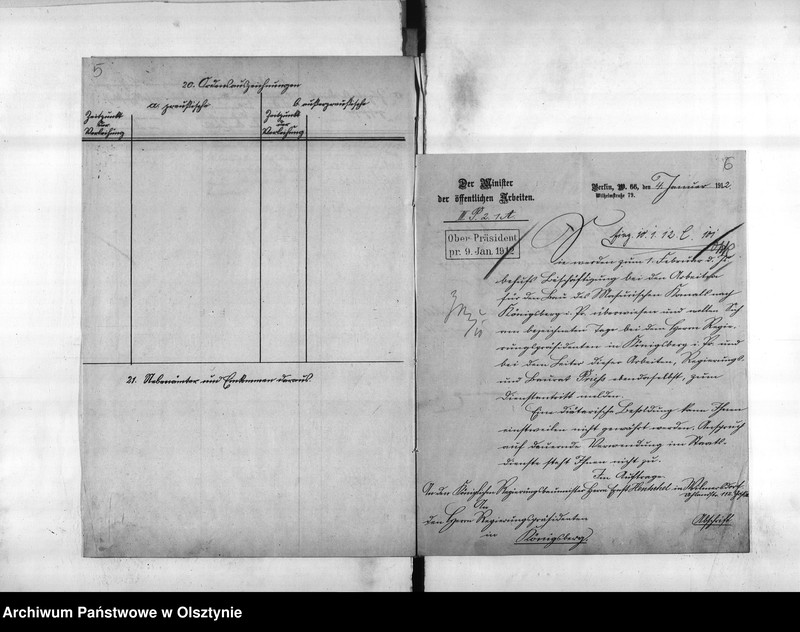 5
20. Ordensauszeichnungen
a. preußische
b. außerpreußische
Zeitpunkt
der
Verleihung
Zeitpunkt
der
Verleihung
21. Nebenämter und Einkommen daraus.
6
Der Minister
der öffentlichen Arbeiten.
III P. 2. 1 A.
Berlin, W. 66, den 4. Januar 1912.
Wilhelmstraße 79.
Ober-Präsident
pr. 9. Jan. 1912
Sie werden zum 1. Februar d. Js.
behufs Beschäftigung bei den Arbeiten
für den Bau des Masurischen Kanals nach
Königsberg i. Pr. überwiesen und wollen Sich
am bezeichneten Tage bei dem Herrn Regie-
rungspräsidenten in Königsberg i. Pr. und
bei dem Leiter dieser Arbeiten, Regierungs-
und Baurat ebendaselbst, zum
Dienstantritt melden.
Eine diätarische Besoldung kann Ihnen
einstweilen nicht gewährt werden. Anspruch
auf dauernde Verwendung im Staats-
dienste steht Ihnen nicht zu.
Im Auftrage
An den Königlichen Regierungsbaumeister Herrn Ernst Hentschel in Wilmersdorf
An
den Herrn Regierungspräsidenten
in
Königsberg.
Abschrift
Archiwum Państwowe w Olsztynie